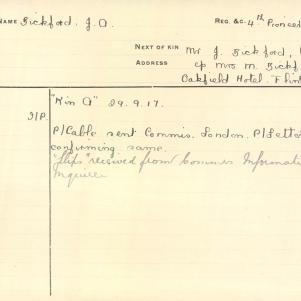 NAME Bickford, J.A. REG. &C. 4th Pioneer
NEXT OF KIN Mr J. Bickford,
ADDRESS c/o Mrs M. Bickf
Oakfield Hotel. Flin
"Kin A" 29.9.17.
P/Cable sent Commis. London. P/Lette
confirming same.
"Slips" received from Commis Informati
Inquiries